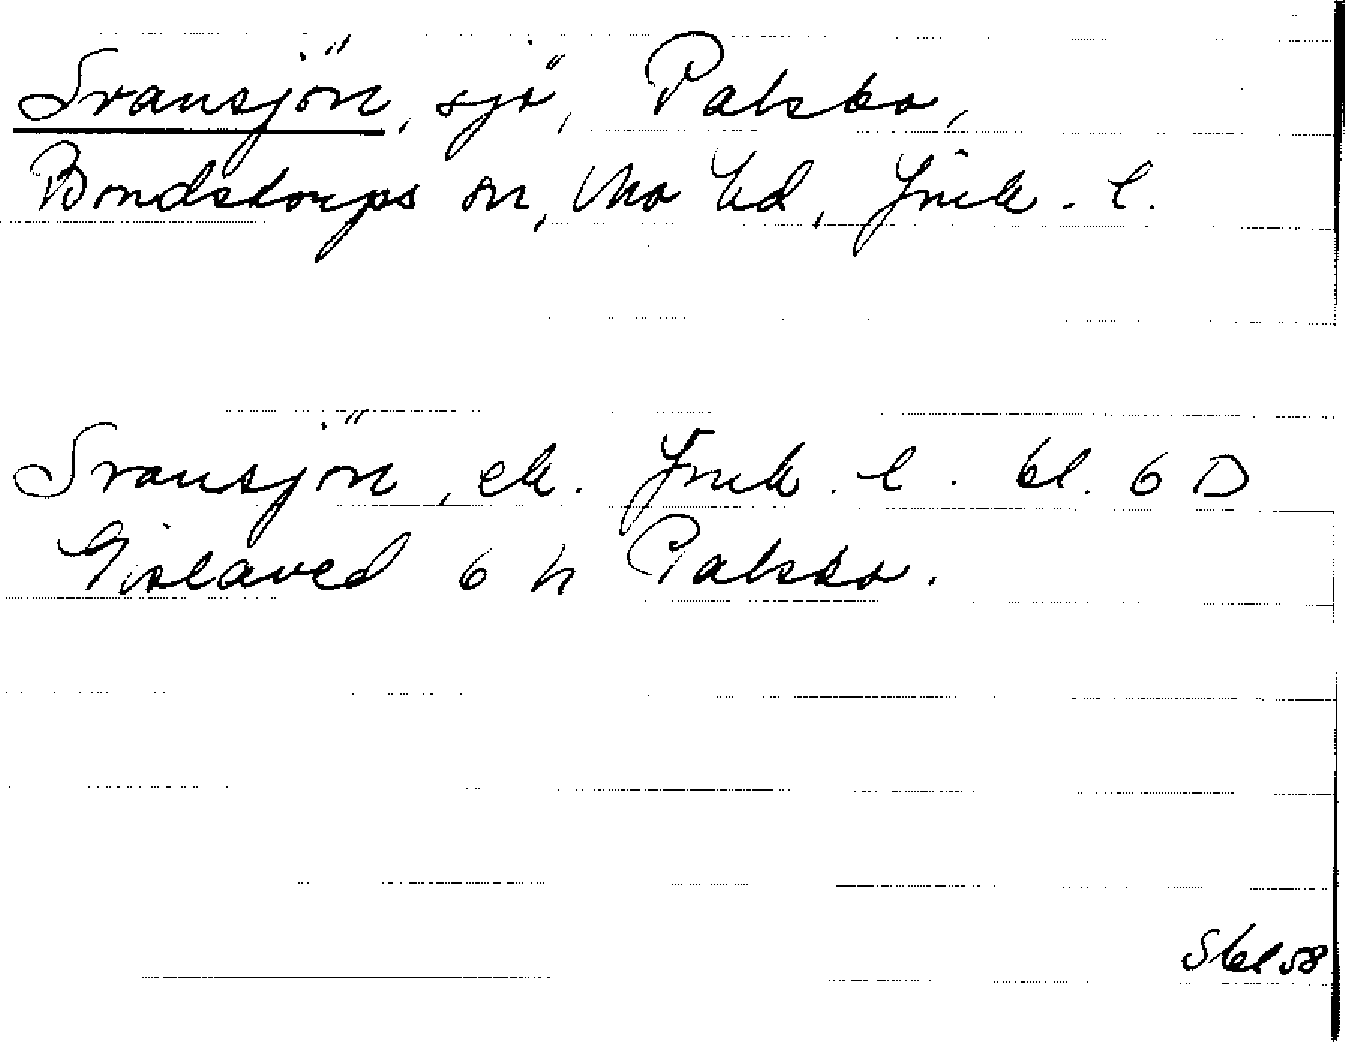 Svansjön, sjö, Palsbo,
Bondstorps sn, Mo hd, Jmk. l.
Svansjön, ek. Jmk. l. bl. 6 D
Gislaved 6 h Palsbo.